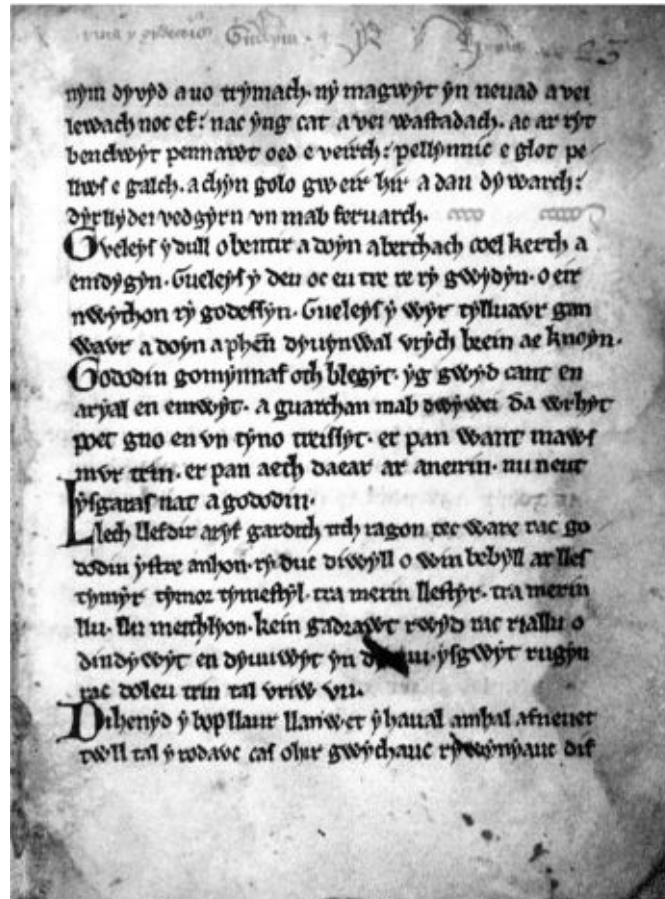 nym dyvyd a uo trymach. ny magwyt yn neuad a vei
lewach noc ef: nac yng cat a vei wastadach. ac ar ryt
benclwyt pennawt oed e veirch: pellynnic e glot pe
llws e galch. a chyn golo gweir hir a dan dywarch:
dyrllydei vedgyrn vn mab feruarch.
Gveleys y dull o bentir a doyn aberthach coel kerth a
emdygyn. Gueleys y deu oc eu tre re ry gwydyn. o eir
nwython ry godessyn. Gueleys y wyr tylluavr gan
wavr a doyn a phen̄ dyuynwal vrych brein ae knoyn.
Gododin gomynnaf oth blegyt. yg gwyd cant en
aryal en emwyt. a guarchan mab dwywei da wrhyt
poet gno en vn tyno treissyt. er pan want maws
mvr trin. er pan aeth daear ar aneirin. nu neut
ysgaras nat a gododin.
Llech llefdir arys gardith tith ragon tec ware rac go
dodin ystre anhon. ry duc diwyll o win bebyll ar lles
tymyr tymor tymestyl. tra merin llestyr. tra merin
llu. llu meithlyon. kein gadrawt rwyd rac riallu o
dindywyt en dyuuwyt yn ysgwyt rugyn
rac doleu trin tal vriw vu.
Dihenyd y bop llaur llanwet y haual amhal afneuet
twll tal y rodavc cas ohir gwychauc rywynyauc dif